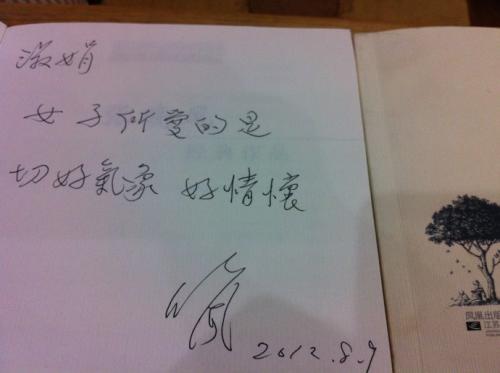 淑娟
女子所愛的是
切好氣象 好情懷
2012.8.9
凤凰出版
江苏